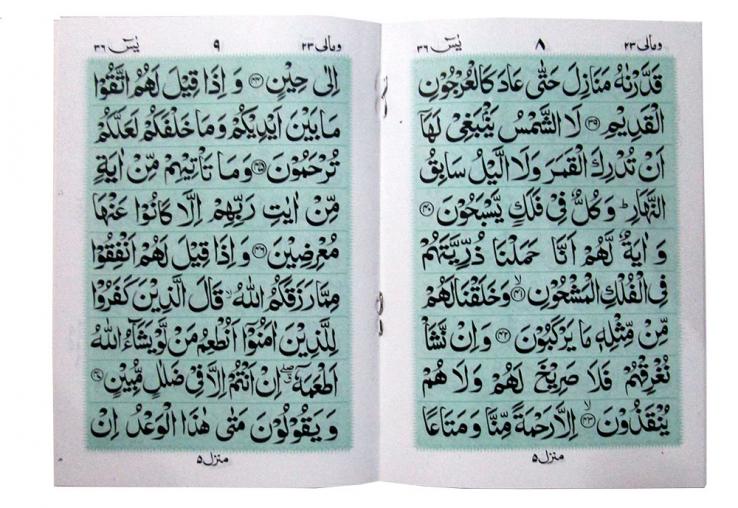 ومالی ۲۳ ۸ یٰسٓ ۳۶
قَدَّرْنٰهُ مَنَازِلَ حَتّٰى عَادَ كَالْعُرْجُوْنِ
الْقَدِيْمِ ۳۹ لَا الشَّمْسُ يَنْۢبَغِىْ لَهَا
اَنْ تُدْرِكَ الْقَمَرَ وَلَا الَّيْلُ سَابِقُ
النَّهَارِ ؕ وَكُلٌّ فِىْ فَلَكٍ يَّسْبَحُوْنَ ۴۰
وَ اٰيَةٌ لَّهُمْ اَنَّا حَمَلْنَا ذُرِّيَّتَهُمْ
فِى الْفُلْكِ الْمَشْحُوْنِ ۙ ۴۱ وَخَلَقْنَا لَهُمْ
مِّنْ مِّثْلِهٖ مَا يَرْكَبُوْنَ ۴۲ وَاِنْ نَّشَاْ
نُغْرِقْهُمْ فَلَا صَرِيْخَ لَهُمْ وَلَا هُمْ
يُنْقَذُوْنَ ۙ ۴۳ اِلَّا رَحْمَةً مِّنَّا وَمَتَاعًا
منزل ۵
ومالی ۲۳ ۹ یٰسٓ ۳۶
اِلٰى حِيْنٍ ۴۴ وَ اِذَا قِيْلَ لَهُمُ اتَّقُوْا
مَا بَيْنَ اَيْدِيْكُمْ وَمَا خَلْفَكُمْ لَعَلَّكُمْ
تُرْحَمُوْنَ ۴۵ وَمَا تَاْتِيْهِمْ مِّنْ اٰيَةٍ
مِّنْ اٰيٰتِ رَبِّهِمْ اِلَّا كَانُوْا عَنْهَا
مُعْرِضِيْنَ ۴۶ وَاِذَا قِيْلَ لَهُمْ اَنْفِقُوْا
مِمَّا رَزَقَكُمُ اللّٰهُ ۙ قَالَ الَّذِيْنَ كَفَرُوْا
لِلَّذِيْنَ اٰمَنُوْۤا اَنُطْعِمُ مَنْ لَّوْ يَشَآءُ اللّٰهُ
اَطْعَمَهٗۤ ۖ اِنْ اَنْتُمْ اِلَّا فِىْ ضَلٰلٍ مُّبِيْنٍ ۴۷
وَ يَقُوْلُوْنَ مَتٰى هٰذَا الْوَعْدُ اِنْ
منزل ۵